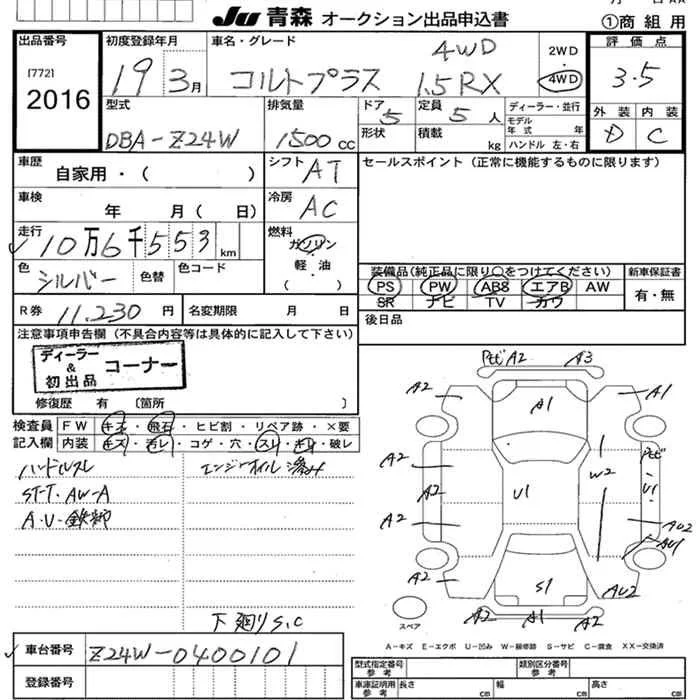 JU 青森 オークション出品申込書
①商 組 用
出品番号
[772]
2016
初度登録年月
19 3月
車名・グレード
4WD
コルトプラス 1.5RX
2WD
・
4WD
評価点
3.5
外装 内装
D C
型式
DBA-Z24W
排気量
1500 cc
ドア 5
形状
定員 5 人
積載 kg
ディーラー・並行
モデル
年式 年
ハンドル 左・右
車歴
自家用・( )
シフト AT
セールスポイント(正常に機能するものに限ります)
車検
年 月( 日)
冷房 AC
走行
10万6千553 km
燃料
ガソリン
軽・油
( )
色 シルバー 色替 色コード
装備品(純正品に限り○をつけてください)
PS PW ABS エアB AW
SR ナビ TV カワ
新車保証書
有・無
R券 11,230 円 名変期限 月 日
後日品
注意事項申告欄(不具合内容等は具体的に記入して下さい)
ディーラー
&
初出品
コーナー
修復歴 有 〔箇所 〕
検査員
記入欄
FW キズ・飛石・ヒビ割・リペア跡・×要
内装 キズ・汚レ・コゲ・穴・スレ・キレ・破レ
ハンドルスレ
エンジンオイル滲み
ST-T・AW-A
下廻りS.C
A2 A2 A3 A1
A1
A2 A2 U1 W2 U1
A2 A2 AU2
AU1
A2 S1 AU2
A2 A1 A2
スペア
A-キズ E-エクボ U-凹み W-補修跡 S-サビ C-腐食 XX-交換済
車台番号
Z24W-0400101
登録番号
型式指定番号
参考
類別区分番号
参考
車庫証明用
参考
長さ cm 幅 cm 高さ cm